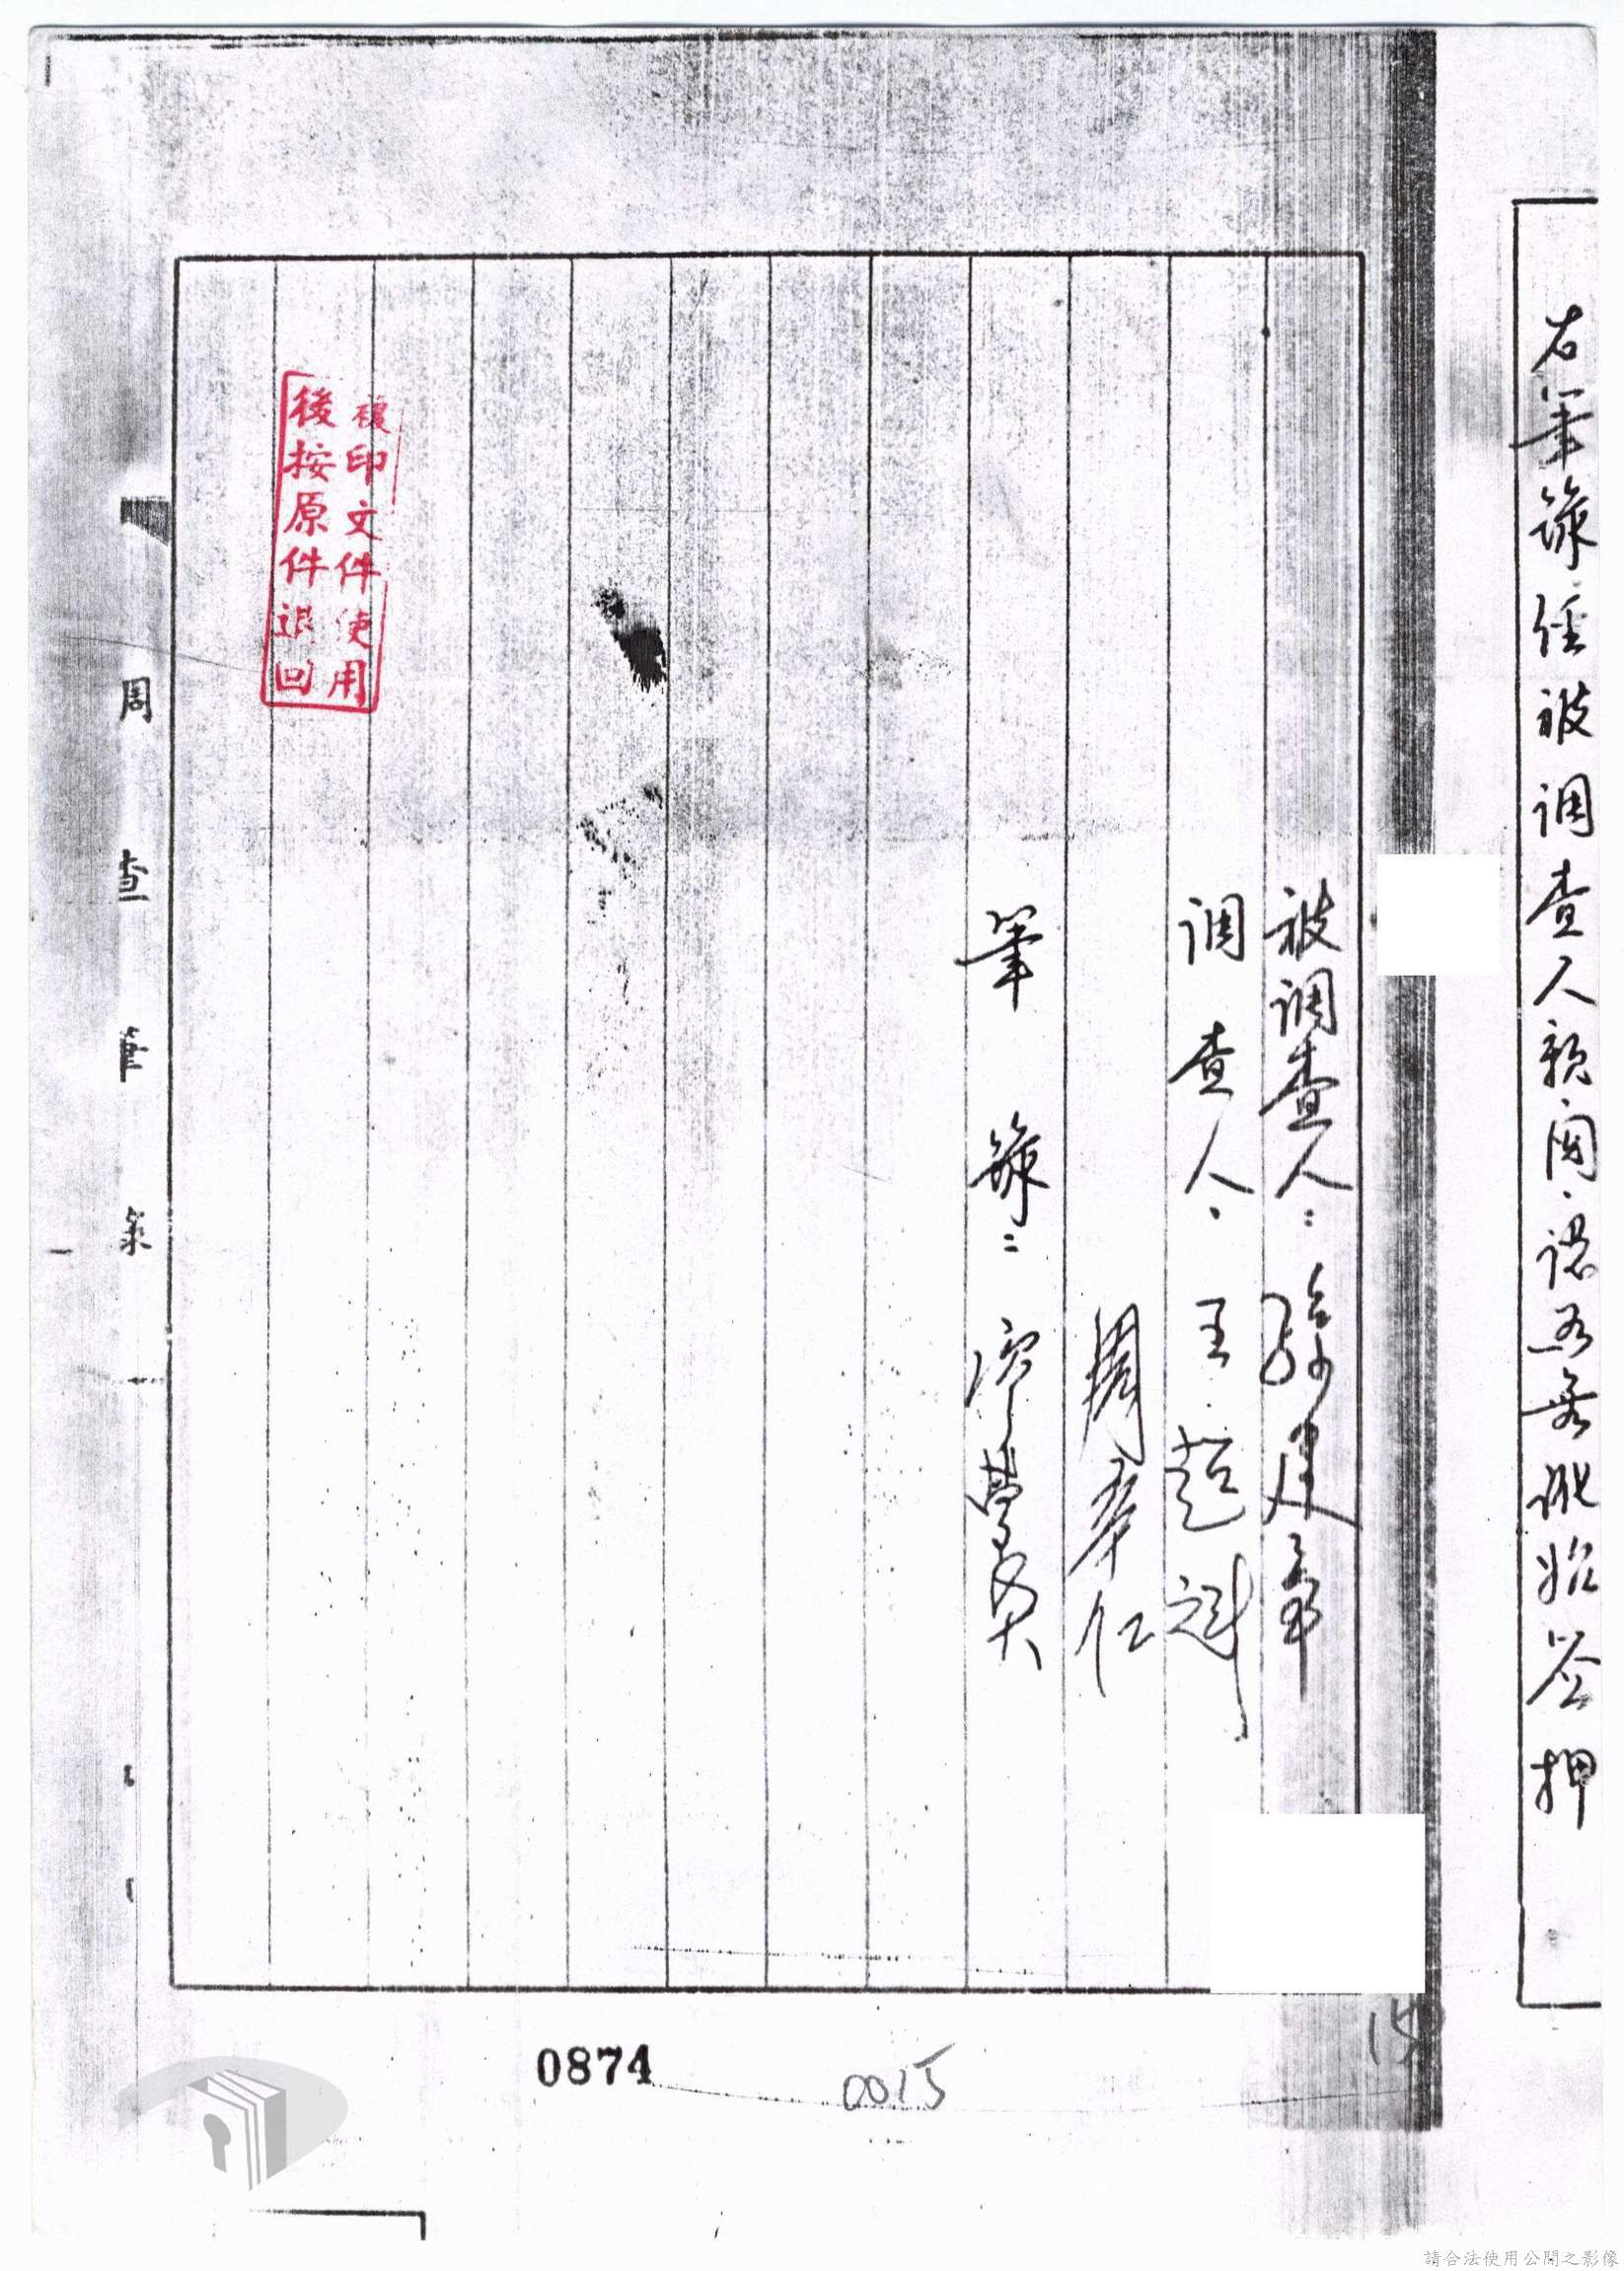 右筆錄經被調查人親閱認為無訛始簽押
被調查人：
調查人：王超
周奉仁
筆錄：
複印文件使用
後按原件退回
調查筆錄
0874
0015
15
請合法使用公開之影像